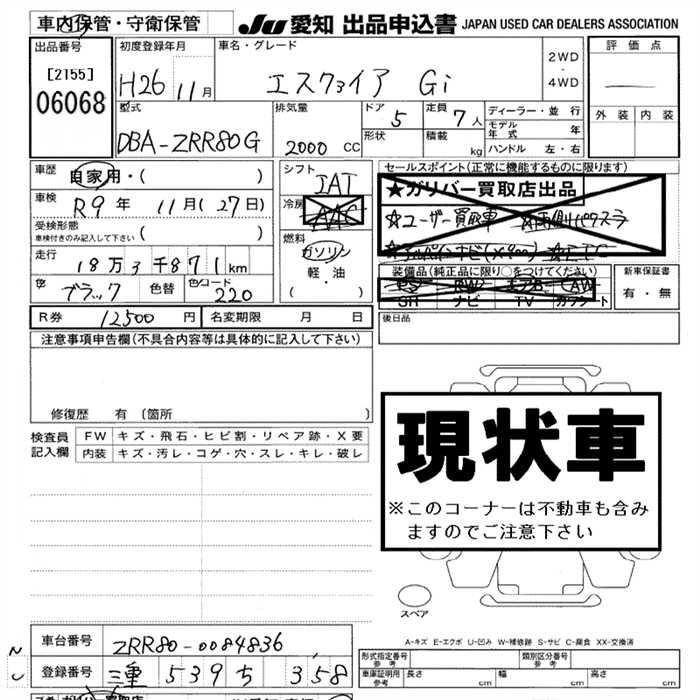 車内保管・守衛保管
JU 愛知 出品申込書 JAPAN USED CAR DEALERS ASSOCIATION
出品番号
[2155]
06068
初度登録年月
H26 11月
車名・グレード
エスクァイア Gi
2WD
・
4WD
評価点
外装 内装
型式
DBA-ZRR80G
排気量
2000 CC
ドア 5
形状
定員 7人
積載 kg
ディーラー・並行
モデル年式 年
ハンドル 左・右
車歴 自家用・( )
車検 R9年 11月(27日)
受検形態
車検付きのみ記入して下さい ( )
走行 18万3千871km
色 ブラック 色替 色コード 220
シフト
IAT
冷房
AAC
燃料
ガソリン
軽・油
( ・ )
セールスポイント(正常に機能するものに限ります)
★ガリバー買取店出品
☆ユーザー買取車
☆ETC
装備品(純正品に限り○をつけてください)
PS PW エアB AW
SR ナビ TV カワシート
新車保証書
有・無
R券 12500円 名変期限 月 日
後日品
注意事項申告欄(不具合内容等は具体的に記入して下さい)
修復歴 有 (箇所 )
検査員記入欄
FW キズ・飛石・ヒビ割・リペア跡・X要
内装 キズ・汚レ・コゲ・穴・スレ・キレ・破レ
現状車
※このコーナーは不動車も含み
ますのでご注意下さい
スペア
A-キズ E-エクボ U-凹み W-補修跡 S-サビ C-腐食 XX-交換済
車台番号 ZRR80-0084836
登録番号 三重 539 ち 358
形式指定番号
参考
類別区分番号
参考
車庫証明用
参考
長さ cm 幅 cm 高さ cm